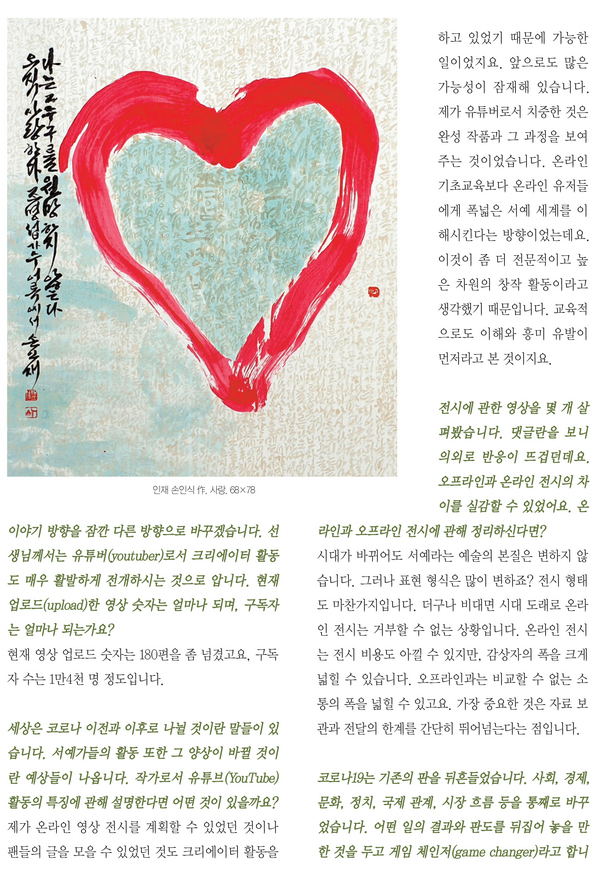 나는 그 누구를 원망하지 않는다
오직 사랑한다 조명섭가수 어록에서
인재 손인식 作, 사랑, 68×78
이야기 방향을 잠깐 다른 방향으로 바꾸겠습니다. 선
생님께서는 유튜버(youtuber)로서 크리에이터 활동
도 매우 활발하게 전개하시는 것으로 압니다. 현재
업로드(upload)한 영상 숫자는 얼마나 되며, 구독자
는 얼마나 되는가요?
현재 영상 업로드 숫자는 180편을 좀 넘겼고요, 구독
자 수는 1만4천 명 정도입니다.
세상은 코로나 이전과 이후로 나뉠 것이란 말들이 있
습니다. 서예가들의 활동 또한 그 양상이 바뀔 것이
란 예상들이 나옵니다. 작가로서 유튜브(YouTube)
활동의 특징에 관해 설명한다면 어떤 것이 있을까요?
제가 온라인 영상 전시를 계획할 수 있었던 것이나
팬들의 글을 모을 수 있었던 것도 크리에이터 활동을
하고 있었기 때문에 가능한
일이었지요. 앞으로도 많은
가능성이 잠재해 있습니다.
제가 유튜버로서 치중한 것은
완성 작품과 그 과정을 보여
주는 것이었습니다. 온라인
기초교육보다 온라인 유저들
에게 폭넓은 서예 세계를 이
해시킨다는 방향이었는데요.
이것이 좀 더 전문적이고 높
은 차원의 창작 활동이라고
생각했기 때문입니다. 교육적
으로도 이해와 흥미 유발이
먼저라고 본 것이지요.
전시에 관한 영상을 몇 개 살
펴봤습니다. 댓글란을 보니
의외로 반응이 뜨겁던데요.
오프라인과 온라인 전시의 차
이를 실감할 수 있었어요. 온
라인과 오프라인 전시에 관해 정리하신다면?
시대가 바뀌어도 서예라는 예술의 본질은 변하지 않
습니다. 그러나 표현 형식은 많이 변하죠? 전시 형태
도 마찬가지입니다. 더구나 비대면 시대 도래로 온라
인 전시는 거부할 수 없는 상황입니다. 온라인 전시
는 전시 비용도 아낄 수 있지만, 감상자의 폭을 크게
넓힐 수 있습니다. 오프라인과는 비교할 수 없는 소
통의 폭을 넓힐 수 있고요. 가장 중요한 것은 자료 보
관과 전달의 한계를 간단히 뛰어넘는다는 점입니다.
코로나19는 기존의 판을 뒤흔들었습니다. 사회, 경제,
문화, 정치, 국제 관계, 시장 흐름 등을 통째로 바꾸
었습니다. 어떤 일의 결과와 판도를 뒤집어 놓을 만
한 것을 두고 게임 체인저(game changer)라고 합니